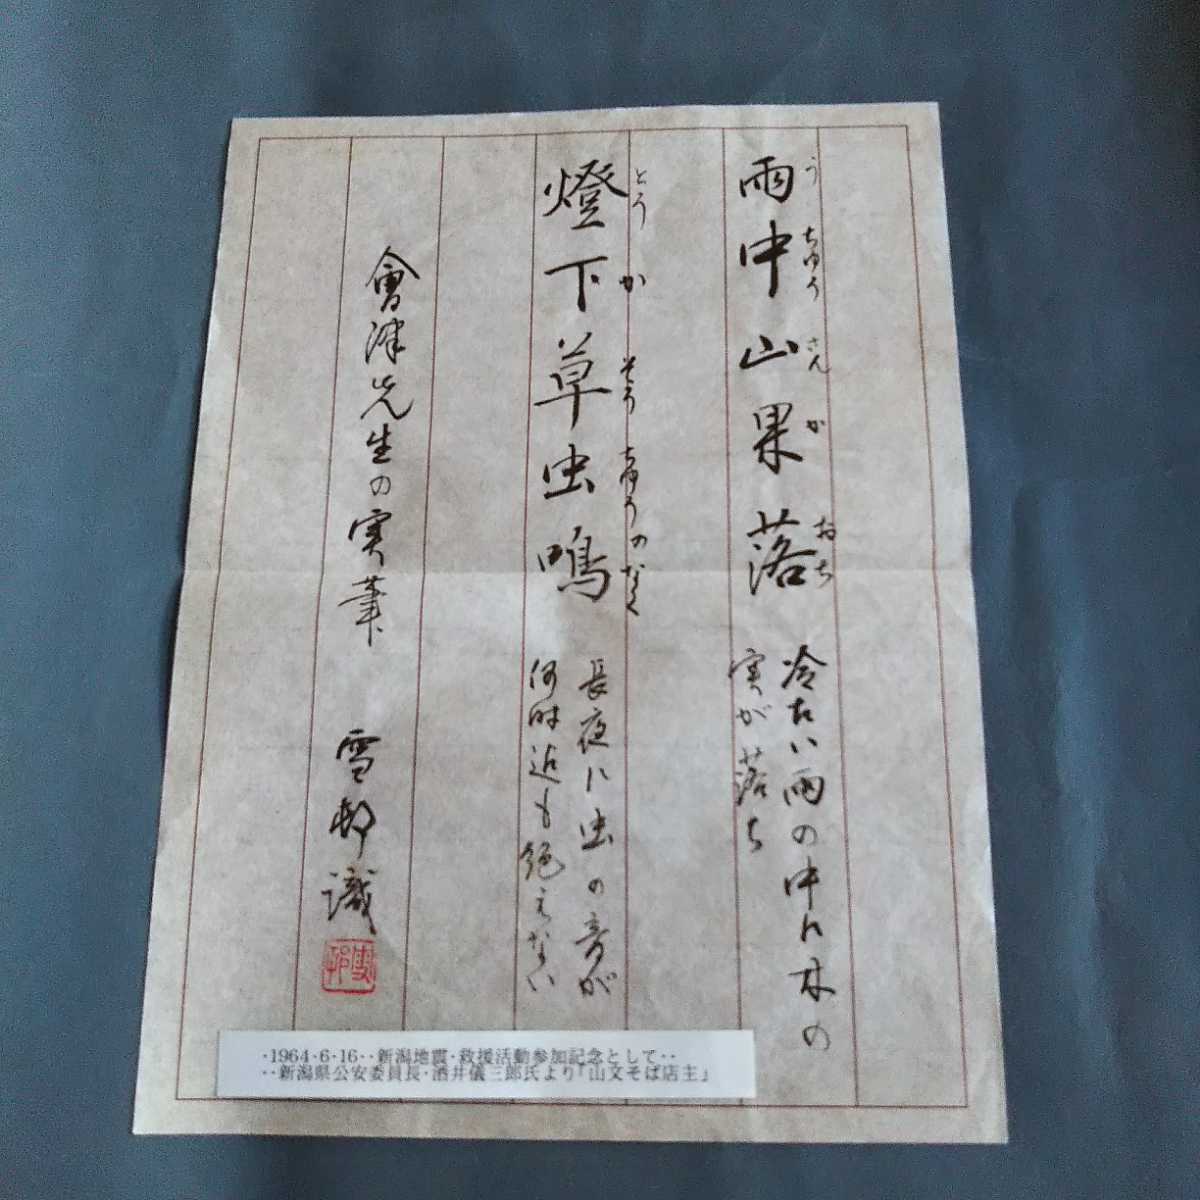 雨中山果落
うちゆうさんかおち
冷たい雨の中に木の
実が落ち
燈下草虫鳴
とうかそうちゆうのなく
長夜に虫の音が
何時迄も絶えない
會津先生の実筆 雪邨識
雪邨
・1964・6・16・・新潟地震・救援活動参加記念として・・
・・新潟県公安委員長・酒井儀三郎氏より「山文そば店主」